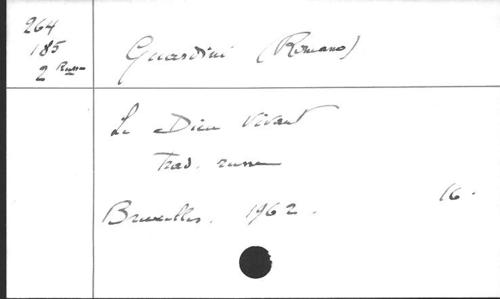 264
185
2 Russe
Guardini (Romano)
Le Dieu vivant
Trad. russe
Bruxelles. 1962. 16.